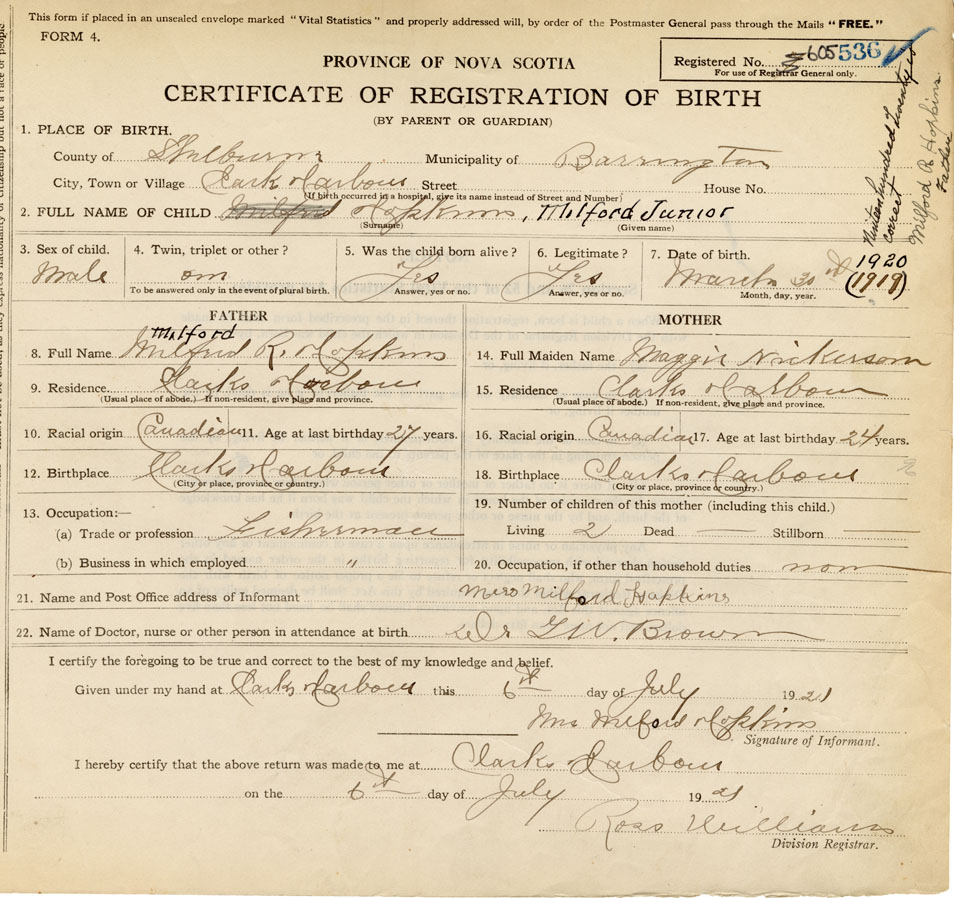 This form if placed in an unsealed envelope marked "Vital Statistics" and properly addressed will, by order of the Postmaster General pass through the Mails "FREE."
FORM 4.
Registered No. 605 536
For use of Registrar General only.
PROVINCE OF NOVA SCOTIA
CERTIFICATE OF REGISTRATION OF BIRTH
(BY PARENT OR GUARDIAN)
Ninteen hundred & twenty is
correct
Milford R. Hopkins
Father
1. PLACE OF BIRTH.
County of Shelburne Municipality of Barrington
City, Town or Village Clark Harbour Street House No.
(If birth occurred in a hospital, give its name instead of Street and Number)
2. FULL NAME OF CHILD Milfred Hopkins, Milford Junior
(Surname) (Given name)
3. Sex of child. 4. Twin, triplet or other? 5. Was the child born alive? 6. Legitimate? 7. Date of birth. 1920
Male Yes Yes March (1919)
To be answered only in the event of plural birth. Answer, yes or no. Answer, yes or no. Month, day, year.
FATHER MOTHER
Milford
8. Full Name Milfred R. Hopkins 14. Full Maiden Name Maggie Nickerson
9. Residence. Clarks Harbour 15. Residence Clarks Harbour
(Usual place of abode.) If non-resident, give place and province. (Usual place of abode.) If non-resident, give place and province.
10. Racial origin Canadian 11. Age at last birthday 27 years. 16. Racial origin Canadian 17. Age at last birthday 24 years.
12. Birthplace Clarks Harbour 18. Birthplace Clarks Harbour
(City or place, province or country.) (City or place, province or country.)
13. Occupation:— 19. Number of children of this mother (including this child.)
(a) Trade or profession Fisherman Living 2 Dead Stillborn
(b) Business in which employed " 20. Occupation, if other than household duties non
21. Name and Post Office address of Informant Mrs Milford Hopkins
22. Name of Doctor, nurse or other person in attendance at birth Dr G W. Brown
I certify the foregoing to be true and correct to the best of my knowledge and belief.
Given under my hand at Clarks Harbour this 6th day of July 1921
Mrs Milford Hopkins
Signature of Informant.
I hereby certify that the above return was made to me at Clarks Harbour
on the 6th day of July 1921
Ross Williams
Division Registrar.